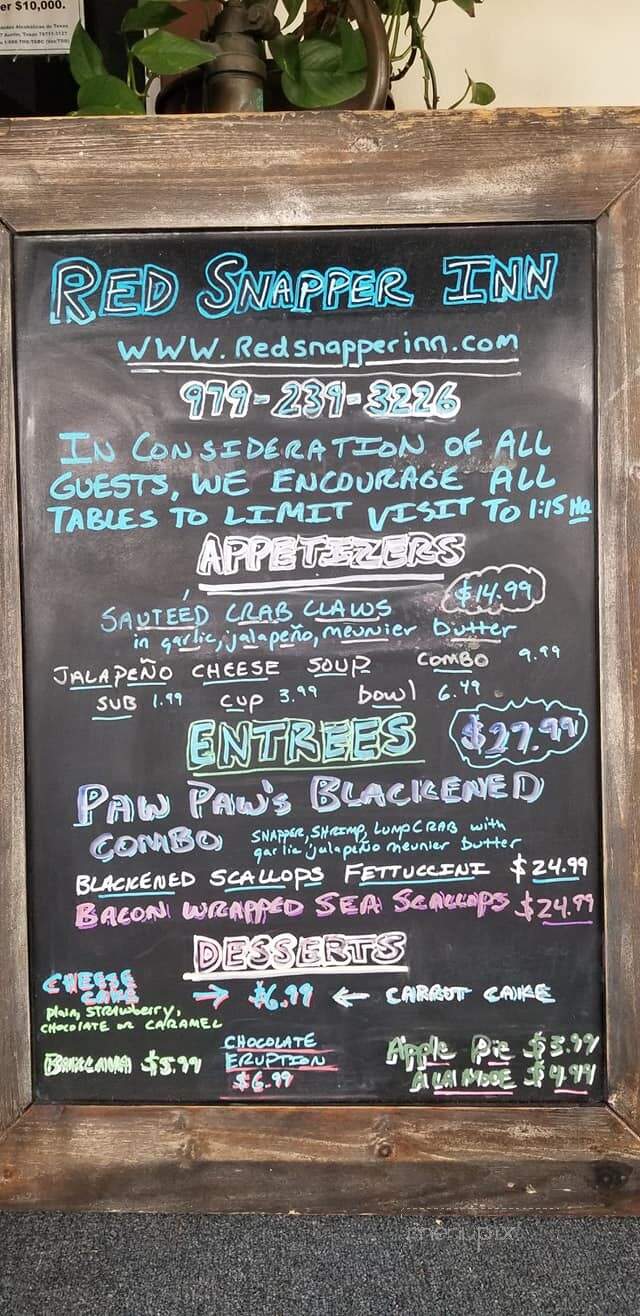 er $10,000.
RED SNAPPER INN
WWW.Redsnapperinn.com
979-239-3226
IN CONSIDERATION OF ALL
GUESTS, WE ENCOURAGE ALL
TABLES TO LIMIT VISIT TO 1:15 HR
APPETIZERS
SAUTÉED CRAB CLAWS $14.99
in garlic, jalapeño, meunier butter
JALAPEÑO CHEESE SOUP COMBO 9.99
SUB 1.99 CUP 3.99 bowl 6.49
ENTREES $27.99
PAW PAW'S BLACKENED
COMBO SNAPPER, SHRIMP, LUMP CRAB with
garlic jalapeño meunier butter
BLACKENED SCALLOPS FETTUCCINI $24.99
BACON WRAPPED SEA SCALLOPS $24.99
DESSERTS
CHEESE
CAKE → $6.99 ← CARROT CAKE
plain, STRAWberry,
CHOCOLATE OR CARAMEL
CHOCOLATE
ERUPTION
$6.99
BAKLAVA $5.99
Apple Pie $3.99
A LA MODE $4.99
menupix